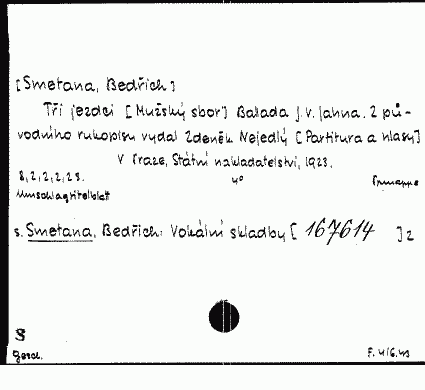 [Smetana, Bedřich]
Tři jezdci [Mužský sbor] Balada J. V. Jahna. Z pů-
vodního rukopisu vydal Zdeněk Nejedlý [Partitura a hlasy]
V Praze, Státní nakladatelství, 1923.
8, 2, 2, 2, 2 S. 4°
Umschlagtitelblatt
s. Smetana, Bedřich: Vokální skladby [ 167614 ] 2
S
Gesch. F. 4/6.43